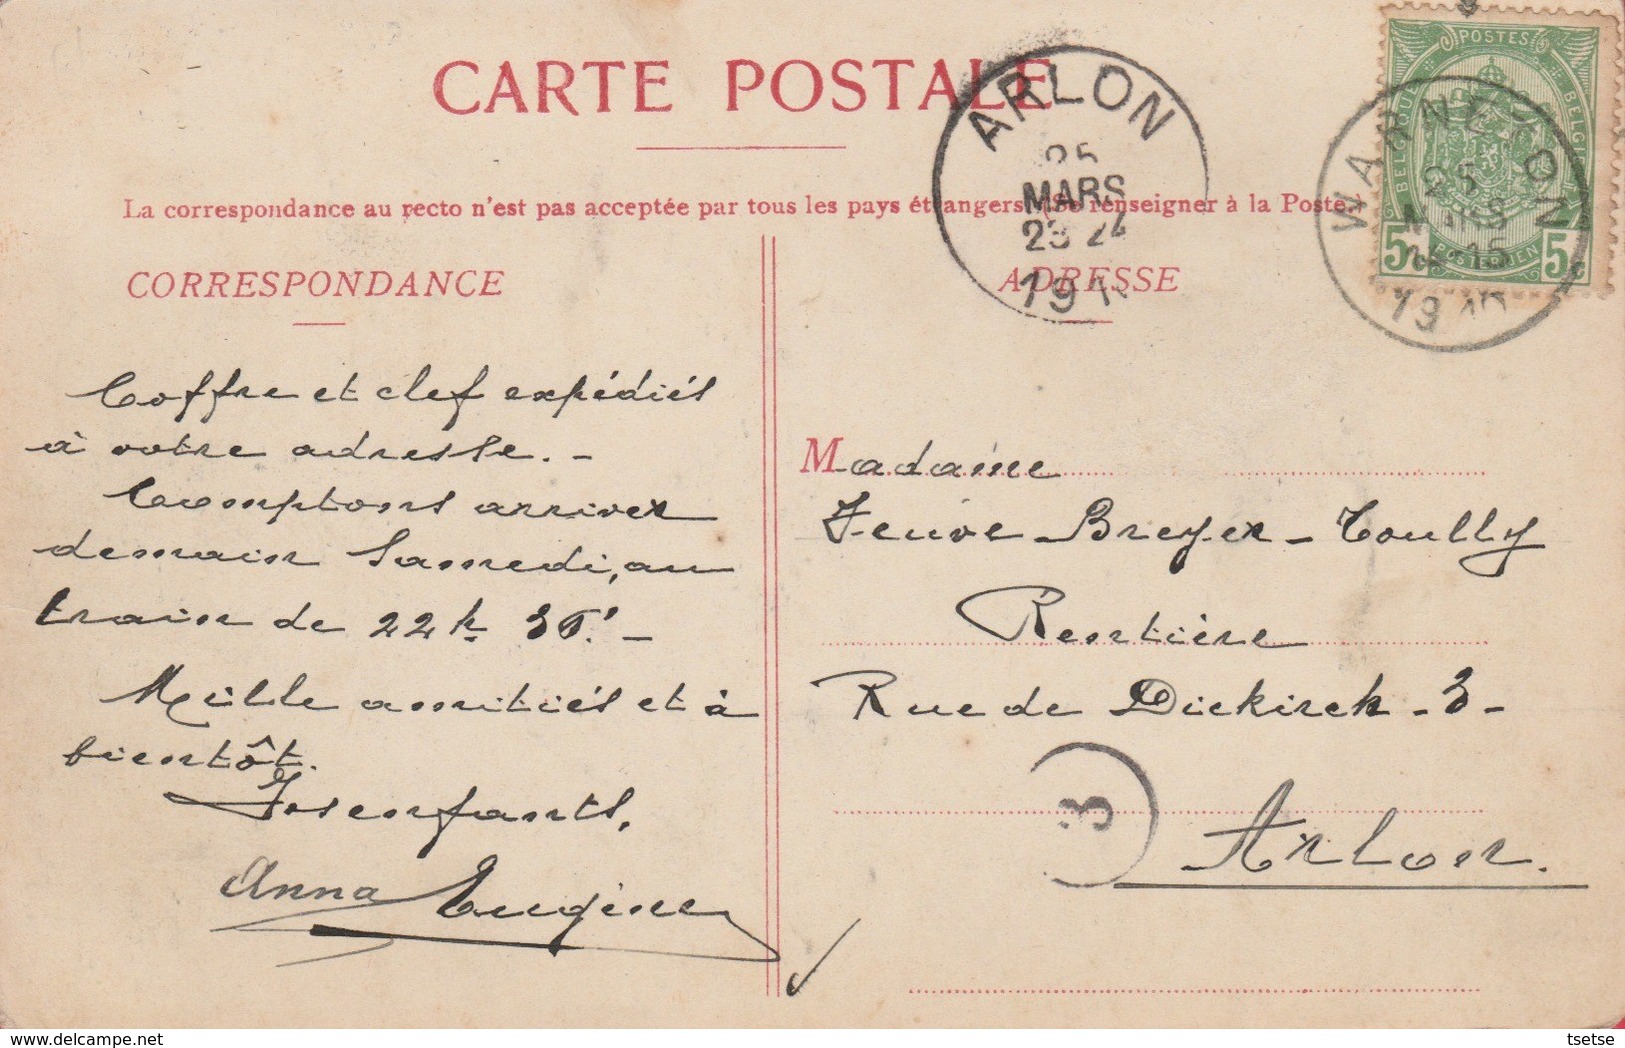 CARTE POSTALE
La correspondance au recto n'est pas acceptée par tous les pays étrangers. (Se renseigner à la Poste.)
CORRESPONDANCE
Coffre et clef expédiés
à votre adresse. -
Comptons arriver
demain Samedi, au
train de 22h 36'. -
Mille amitiés et à
bientôt.
Vos enfants,
Anna Eugène
ADRESSE
Madame
Veuve Breyer - Toully
Rentière
Rue de Diekirch - 3 -
Arlon.
ARLON
25
MARS
23-24
191
WARNETON
25
MARS
15
1910
POSTES
BELGIQUE
BELGIË
POSTERIJEN
5c 5c
3
tsetse